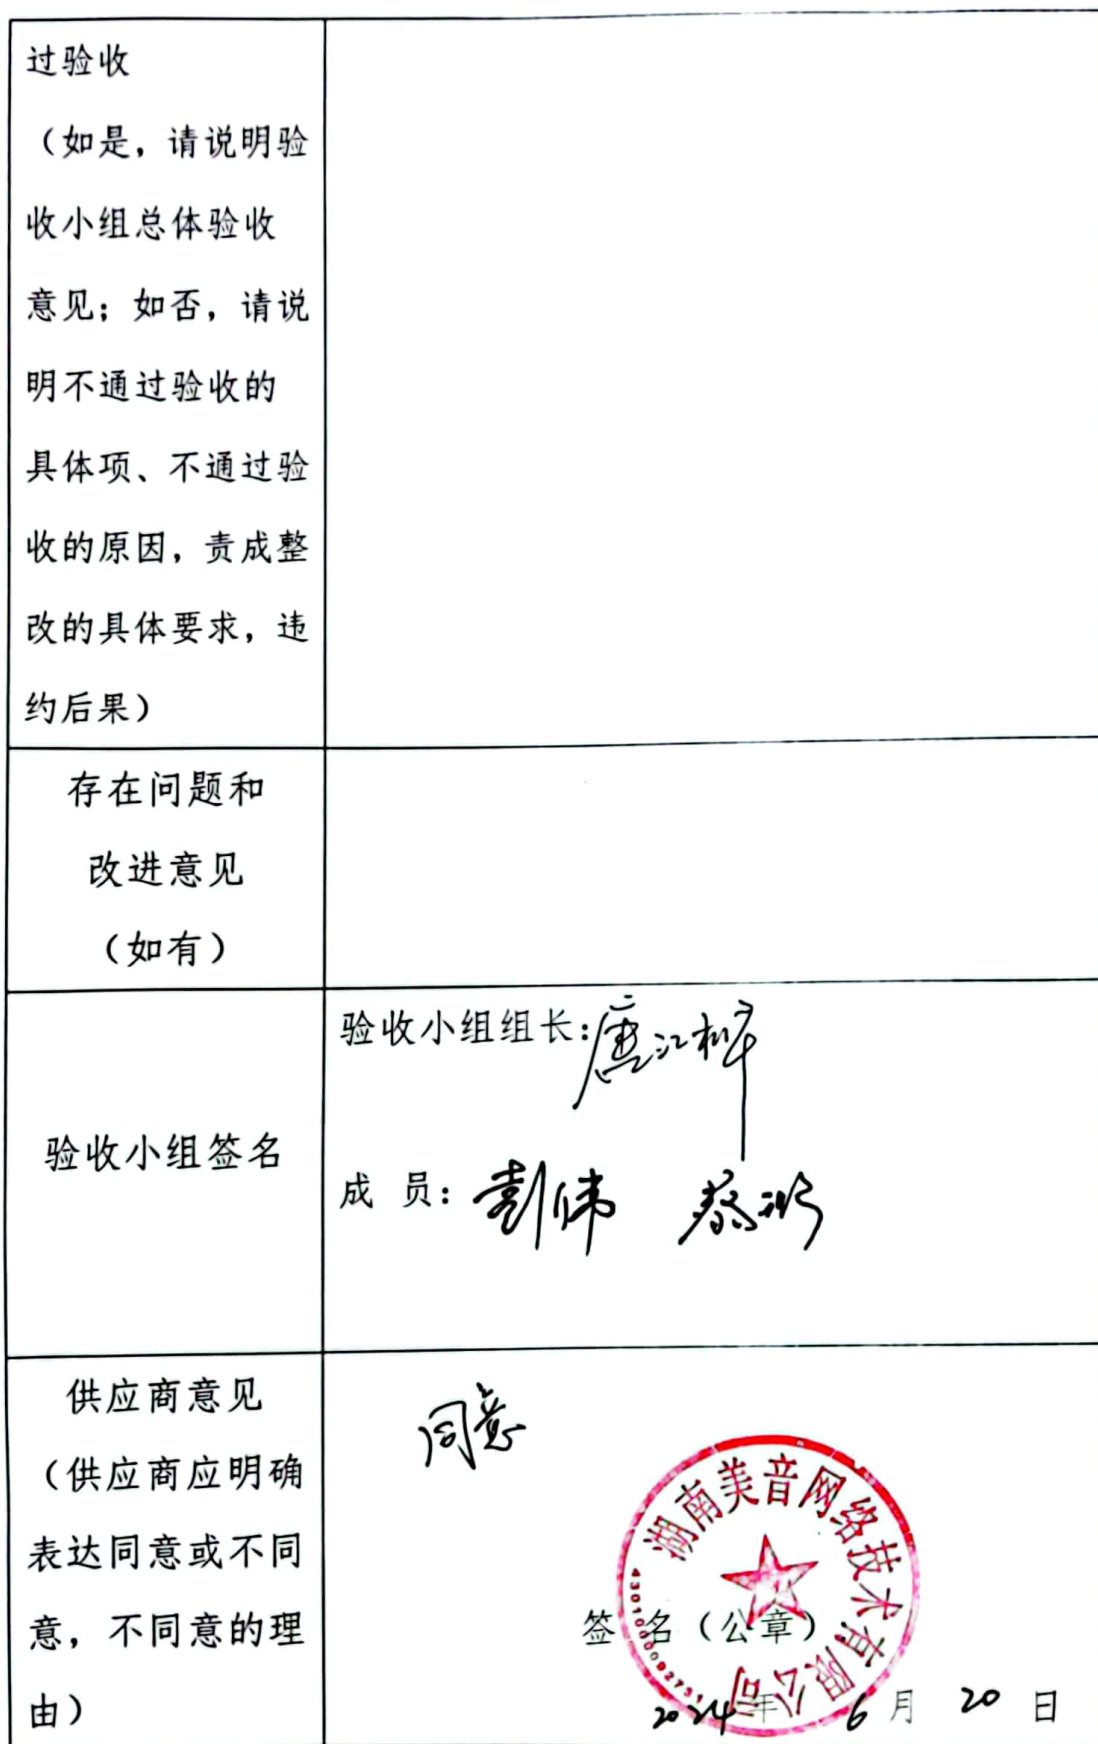 过验收
（如是，请说明验
收小组总体验收
意见；如否，请说
明不通过验收的
具体项、不通过验
收的原因，责成整
改的具体要求，违
约后果）
存在问题和
改进意见
（如有）
验收小组签名
验收小组组长：唐江桦
成 员：彭伟 蔡
供应商意见
（供应商应明确
表达同意或不同
意，不同意的理
由）
同意
湖南美音网络技术有限公司
签 名（公章）
2024年 6月 20日